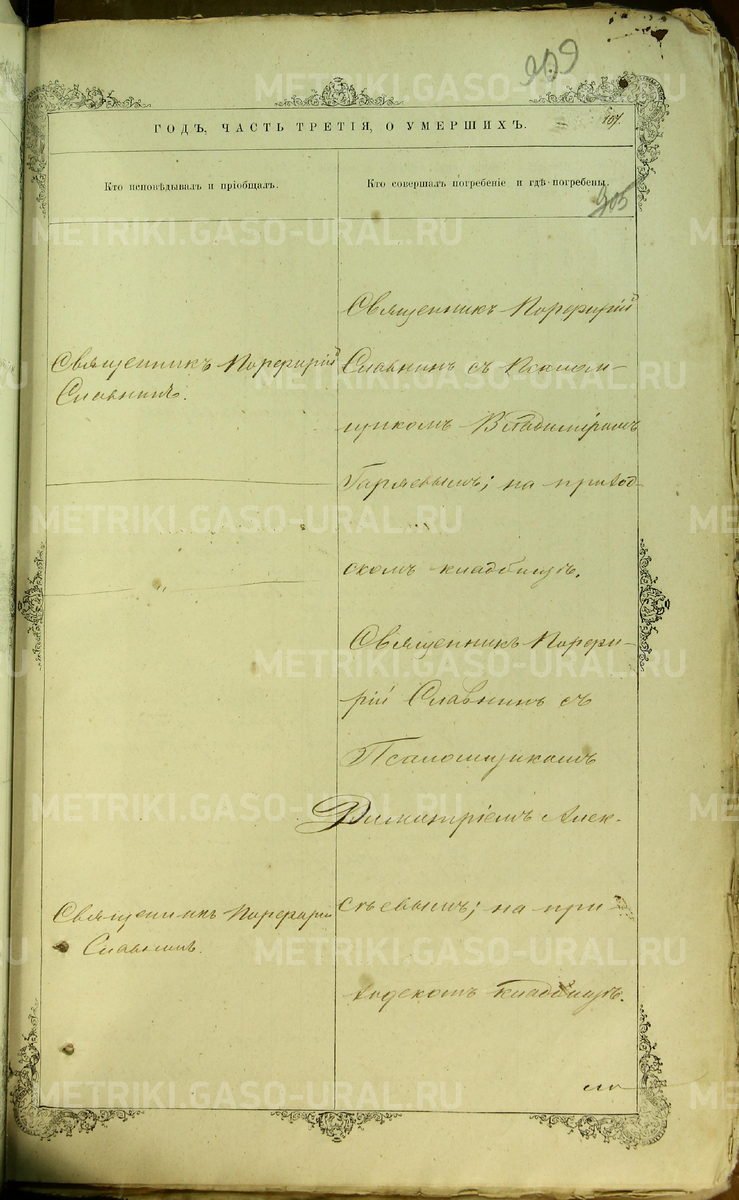 909
ГОДЪ, ЧАСТЬ ТРЕТІЯ, О УМЕРШИХЪ.
107.
Кто исповѣдывалъ и пріобщалъ.
Кто совершалъ погребеніе и гдѣ погребены.
305
Священникъ Порфирій
Славнинъ.
„
Священникъ Порфирій
Славнинъ.
Священникъ Порфирій
Славнинъ съ Псалом-
щикомъ Владиміромъ
Гаряевымъ; на приход-
скомъ кладбищѣ.
Священникъ Порфи-
рій Славнинъ съ
Псаломщикомъ
Димитріемъ Алек-
сѣевымъ; на при-
ходскомъ кладбищѣ.
METRIKI.GASO-URAL.RU